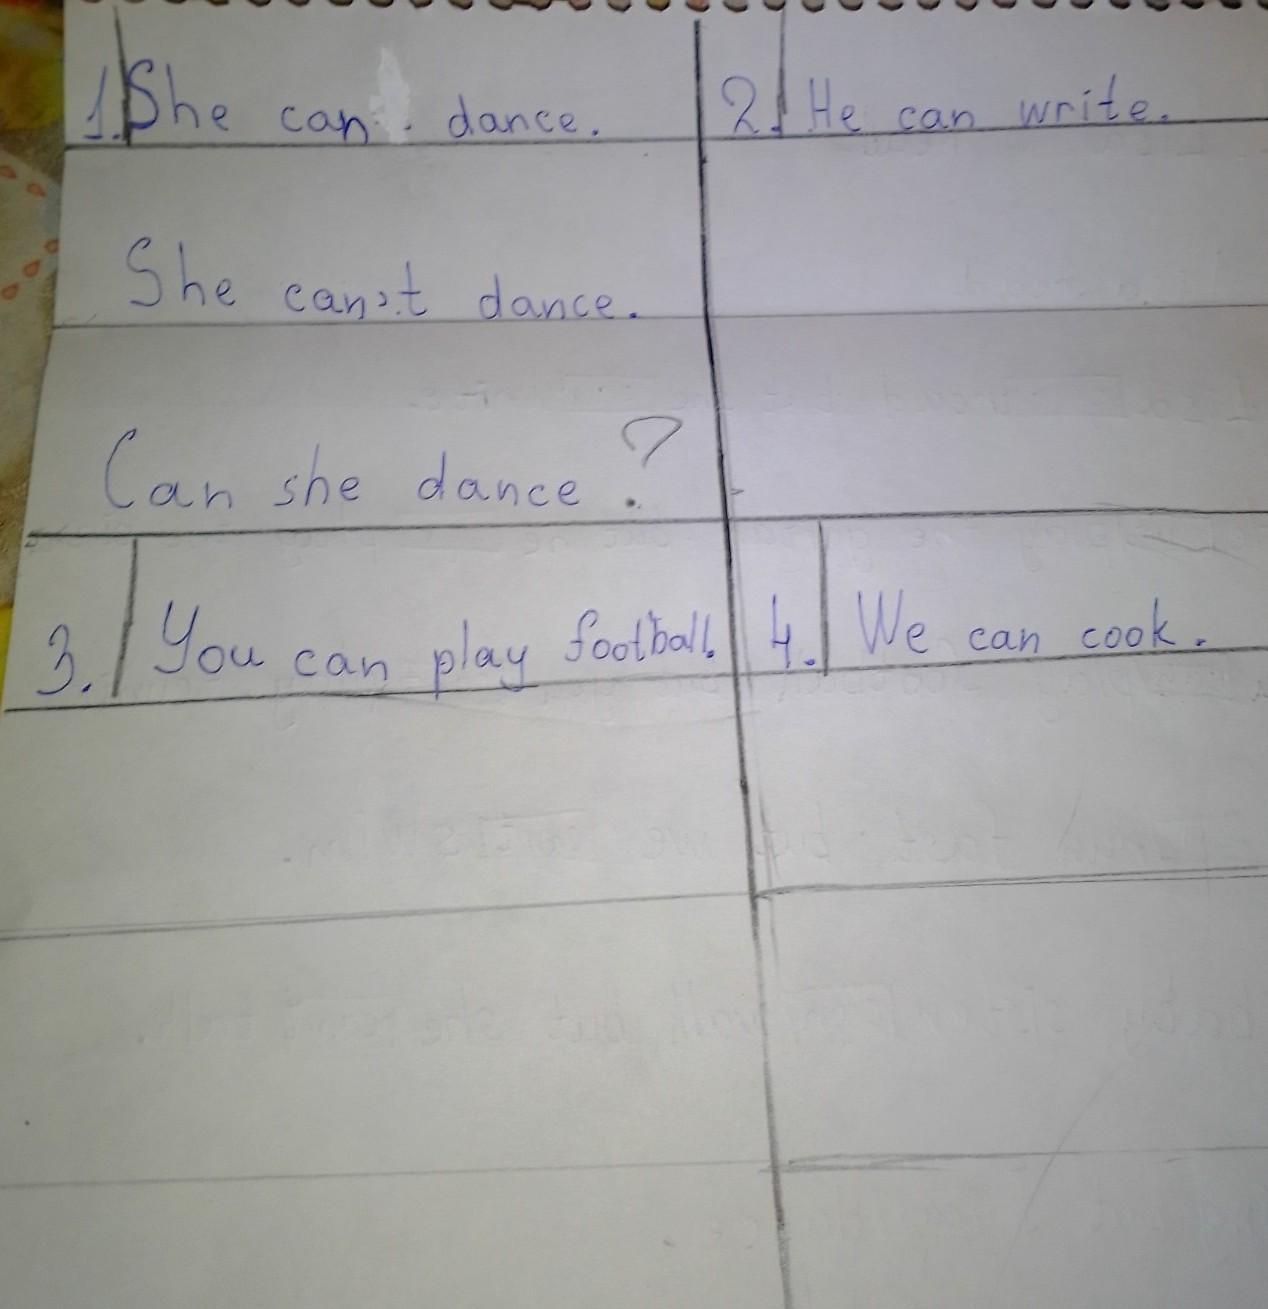 1. She can dance.
She can't dance.
Can she dance?
2. He can write.
3. You can play football.
4. We can cook.